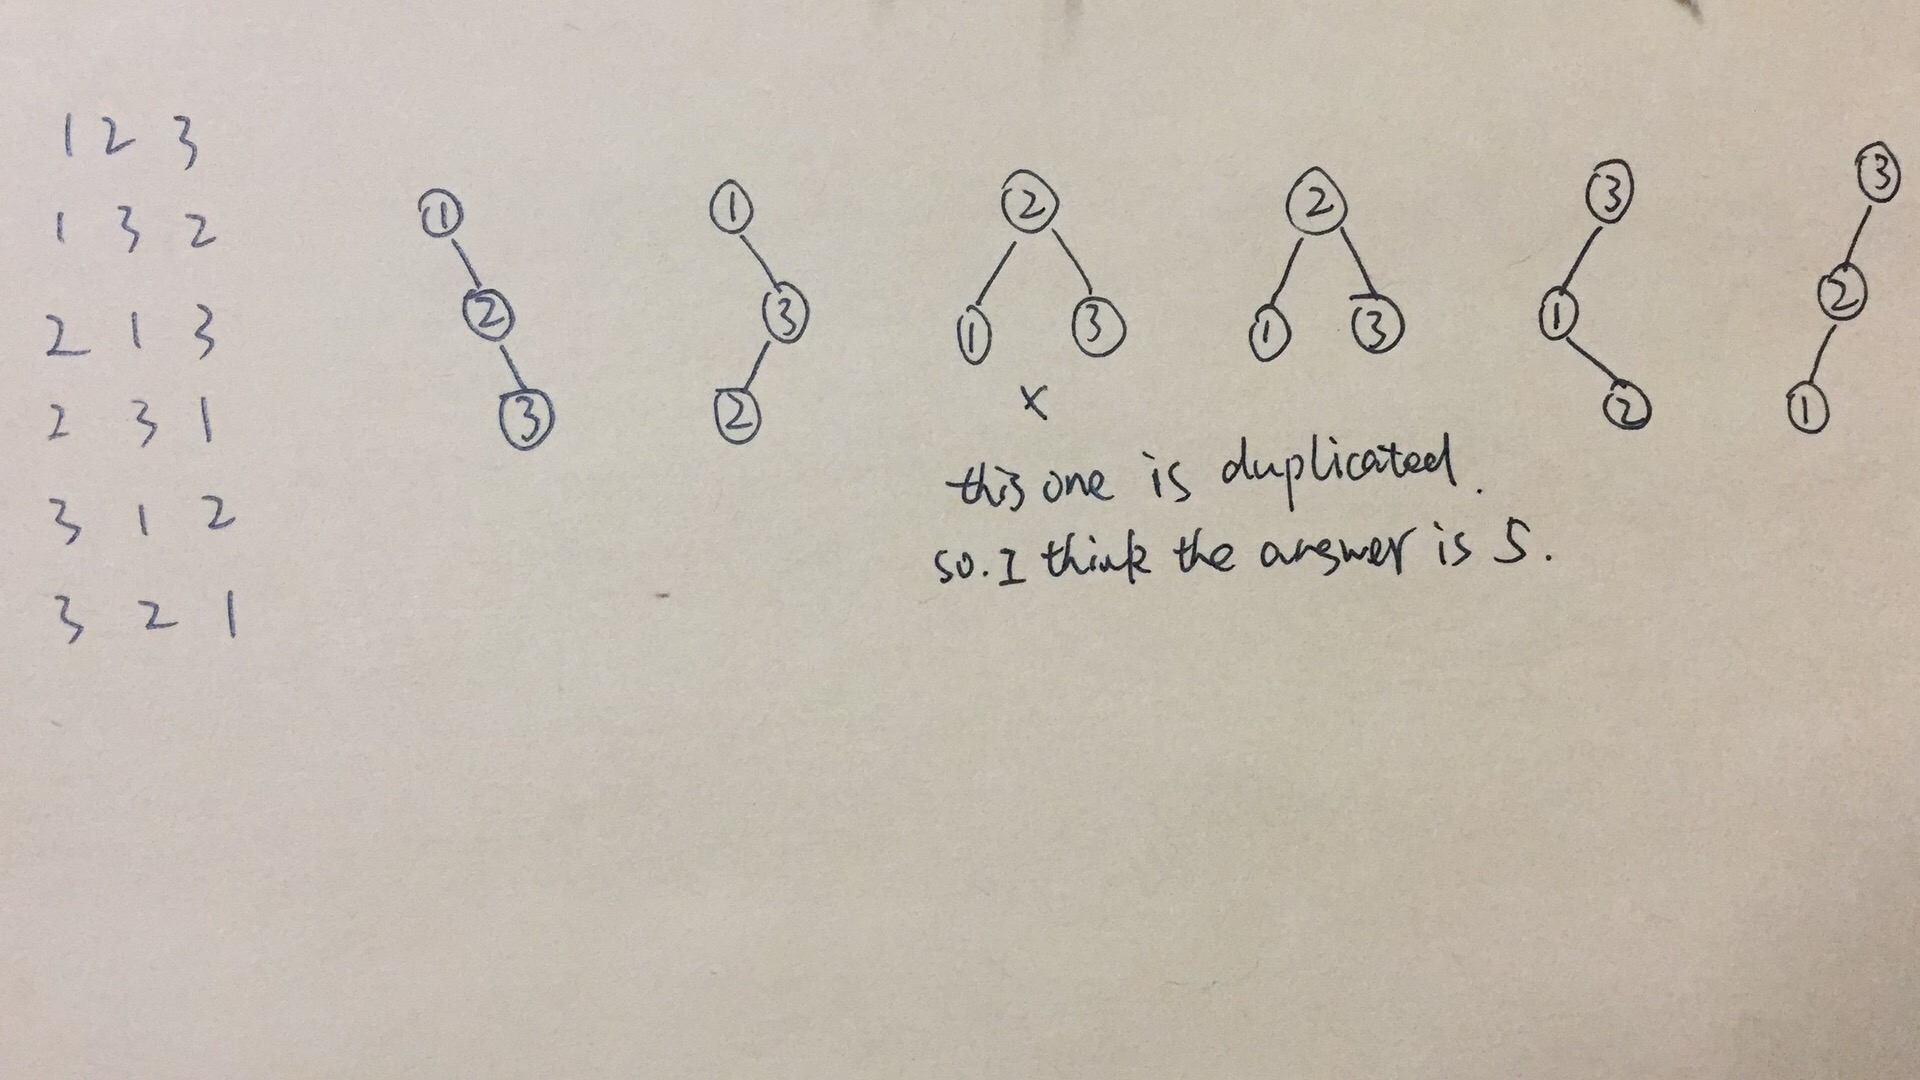 1 2 3
1 3 2
2 1 3
2 3 1
3 1 2
3 2 1
1 2 3
1 3 2
2 1 3
2 1 3
3 1 2
3 2 1
x
this one is duplicated.
so. I think the answer is 5.